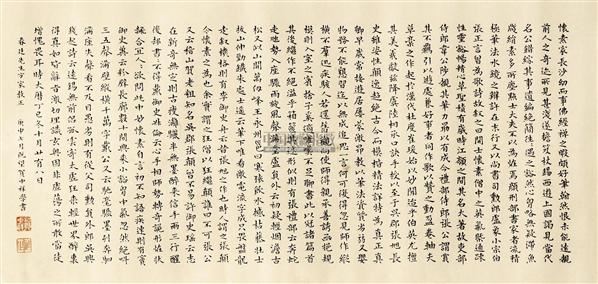 懷素家長沙幼而事佛經禪之暇頗好筆翰然恨未能遠覩
前人之奇迹所見甚淺遂擔笈杖錫西遊上國謁見當代
名公錯綜其事遺編絕簡往往遇之豁然心胸略無疑滯魚
牋絹素多所塵點士大夫不以為怪焉顏刑部書家者流精
極筆法水鏡之辨許在末行又以尚書司勳郎盧象小宗伯
張正言曾為歌詩故敘之曰開士懷素僧中之英氣槩通疎
性靈豁暢精心草聖積有歲時江嶺之間其名大著故吏部
侍郎韋公陟覩其筆力勗以有成今禮部侍郎張公謂賞
其不羈引以遊處兼好事者同作歌以贊之動盈卷軸夫
草稾之作起於漢代杜度崔瑗始以妙聞迨乎伯英尤擅
其美羲獻茲降虞陸相承口訣手授以至于吳郡張旭長
史雖姿性顛逸超絕古今而模楷精法詳特為真正真
卿早歲常接遊居屢蒙激昂教以筆法資質劣弱又嬰
物務不能懇習迄以無成追思一言何可復得忽見師作縱
橫不羣迅疾駭人若還舊觀向使師得親承善誘函挹規
模則入室之賓捨子奚適嗟歎不足聊書此以冠諸篇首
其後繼作不絕溢乎箱篋其述形似則有張禮部云奔蛇
走虺勢入座驟雨旋風聲滿堂盧員外云初疑輕煙澹古
松又似山開萬仞峰王永州邕曰寒猿飲水撼枯藤壯士
拔山伸勁鐵朱處士遙云筆下唯看激電流字成只畏盤龍
走敘機格則有李御史舟云昔張旭之作也時人謂之張顛
今懷素之為也余實謂之狂僧以狂繼顛誰曰不可張公
又云稽山賀老粗知名吳郡張顛曾不易許御史瑤云志
在新奇無定則古瘦灕驪半無墨醉來信手兩三行醒
後却書書不得戴御史叔倫云心手相師勢轉奇詭形怪狀
翻合宜人人欲問此中妙懷素自言初不知語疾速則有竇
御史冀云粉壁長廊數十間興來小豁胸中氣忽然絕叫
三五聲滿壁縱橫千萬字戴公又云馳毫驟墨列奔駟
滿座失聲看不及目愚劣則有從父司勳員外郎吳興
錢起詩云遠錫無前侶孤雲寄太虛狂來輕世界醉裏
得真如皆辭旨激切理識玄奧固非虛蕩之所敢當徒
增愧畏耳時大曆丁巳冬十月廿有八日
春廷先生方家教正 庚申 月 學書